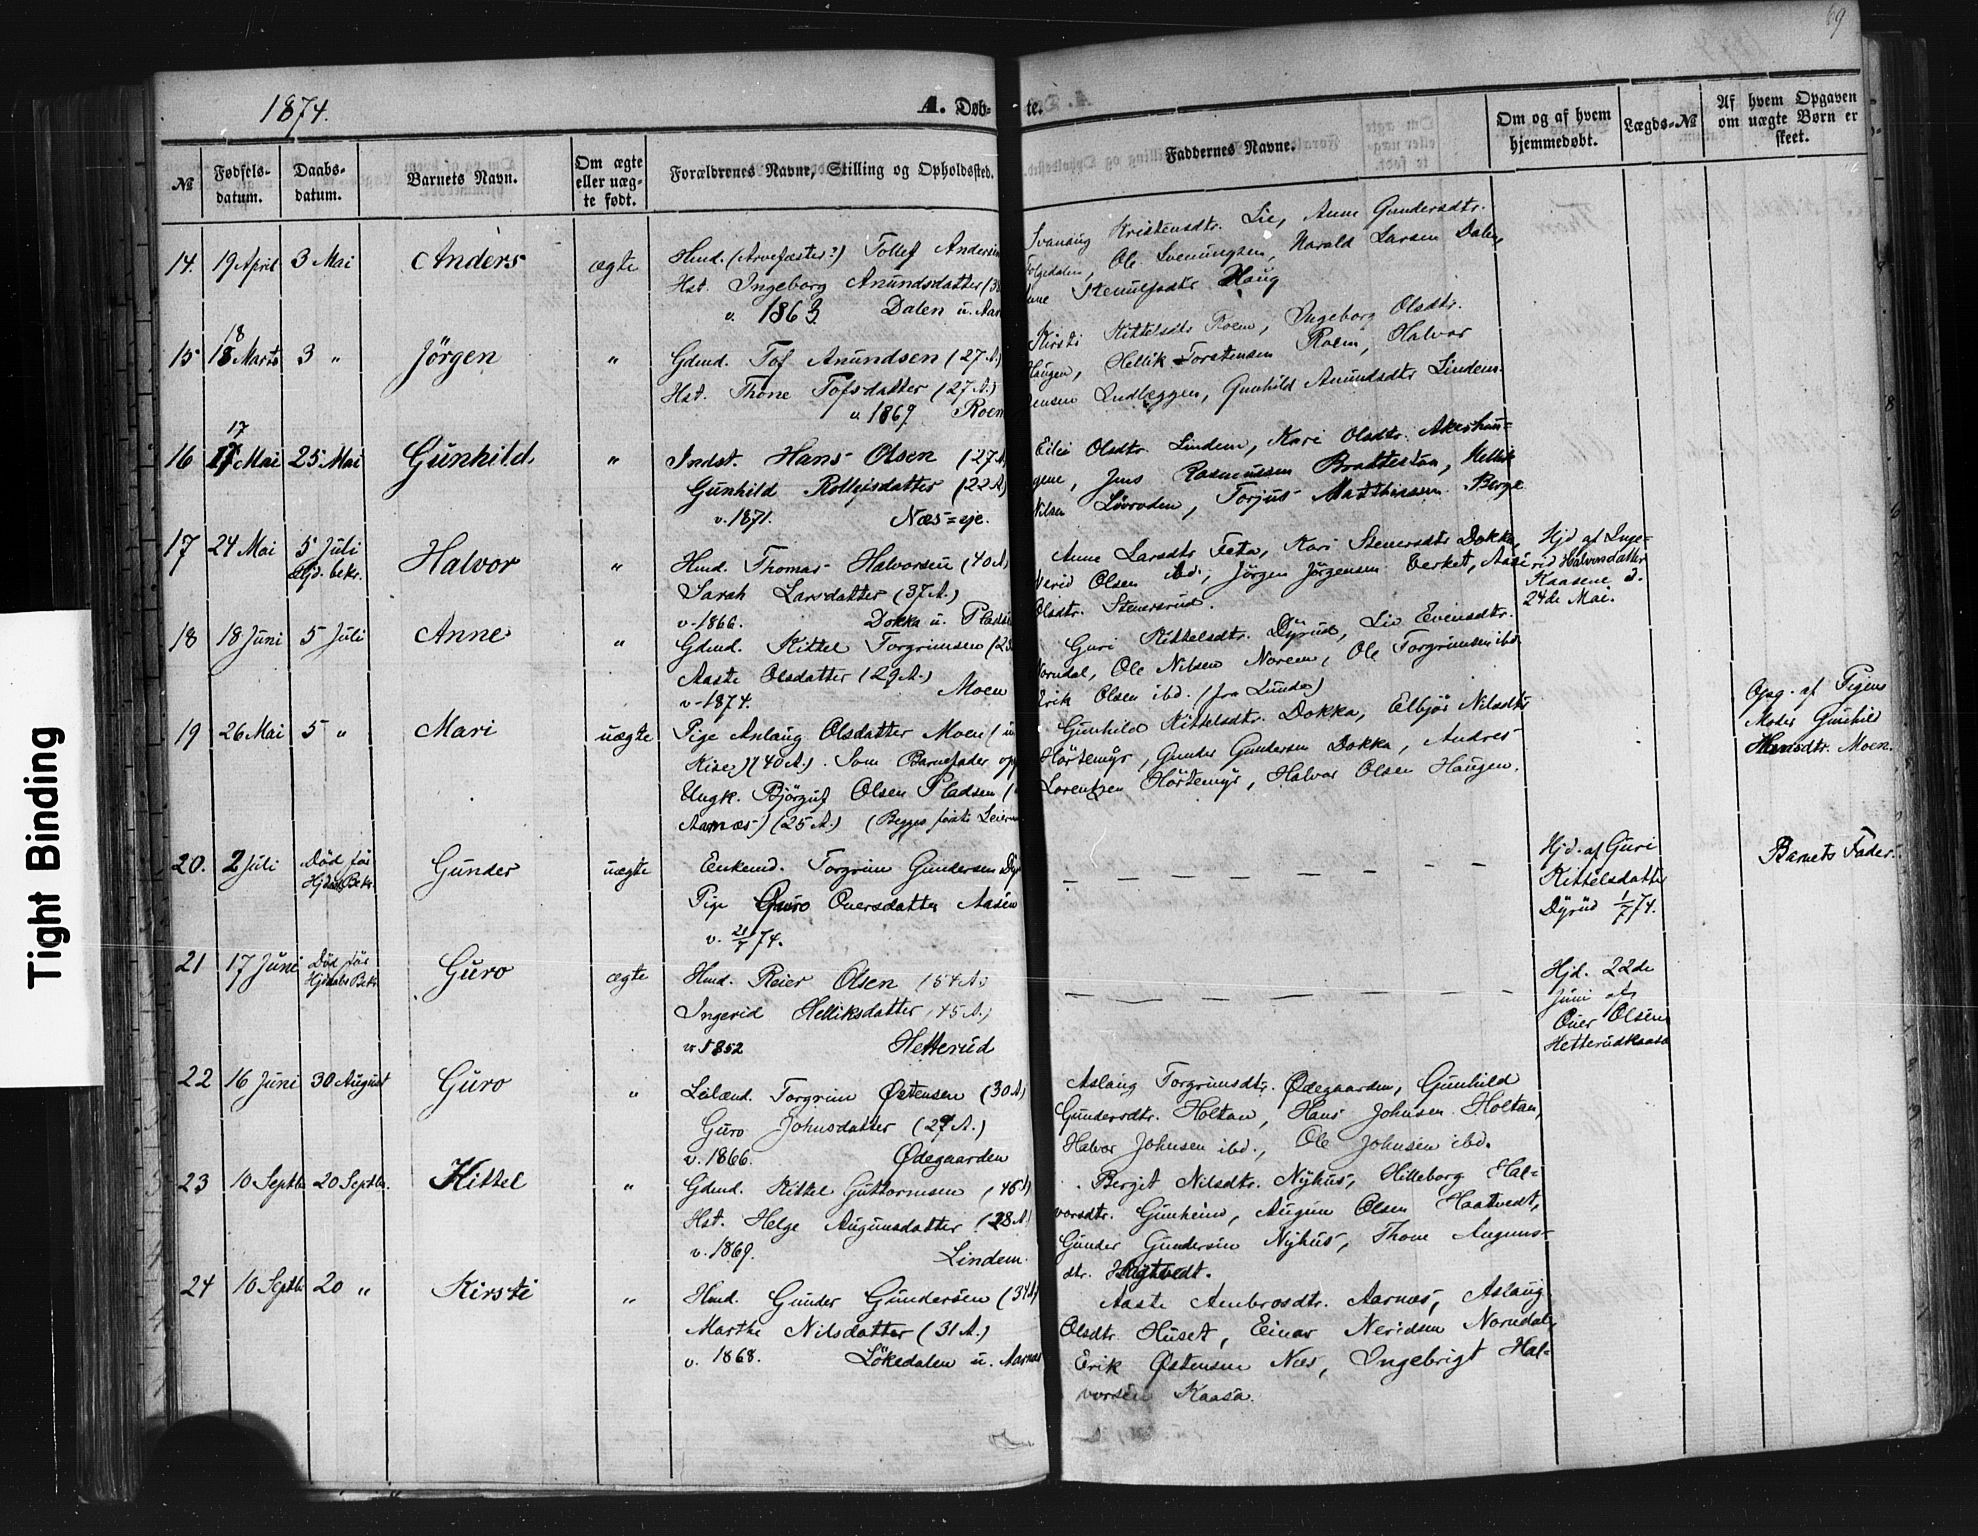 69
1874.
A. Døb-
te.
№
Fødsels-
datum.
Daabs-
datum.
Barnets Navn.
Om ægte
eller uæg-
te født.
Forældrenes Navne, Stilling og Opholdssted.
Faddernes Navne.
Om og af hvem
hjemmedøbt.
Lægds-№
Af hvem Opgaven
om uægte Børn er
skeet.
14. 19 April 3 Mai Anders ægte
Hmd. (Arvefæster?) Tollef Anders
Hst. Ingeborg Anundsdatter (38
v. 1863. Dalen u. Aar
Svanaug Kristensdtr. Lie, Anne Gundersdtr.
Folgedalen, Ole Sveinungsen, Harald Larsen Dalen,
Haug
18
15 18 Marts 3 " Jörgen "
Gdmd. Tof Anundsen (27 A.)
Hst. Thone Tofsdatter (27 A.)
v. 1869. Roem
Kirsti Kittelsdtr Roem, Ingeborg Olsdtr.
Haugen, Hellik Torstensen Roem, Halvor
Jensen Lindbeggen, Gunhild Anundsdtr Lindem.
17
16 17 Mai 25 Mai Gunhild "
Indst. Hans Olsen (27 A
Gunhild Rolleisdatter (22 A)
v. 1871. Næs=eje.
Eilei Olsdtr. Lindem, Kari Olsdtr. Akershau=
gene, Jens Rasmussen Brattestaa, Hellik
Nilsen Lövroden, Torjus Matthiassen Berge
17 24 Mai 5 Juli Halvor "
Hjd. bekr.
Hmd. Thomas Halvorsen (40 A)
Sarah Larsdatter (37 A.)
v. 1866. Dokka u. Pladse
Anne Larsdtr Feta, Kari Steuersdtr Dokka,
Nerid Olsen ibd; Jörgen Jörgensen Verket, Aase
Olsdtr. Steuersrud.
Hjd af Inge=
rid Halvorsdatter
Kaasene d.
24de Mai.
18 18 Juni 5 Juli Anne "
Gdmd. Kittel Torgrimsen (28
Aaste Olsdatter (29 A.)
v. 1874. Moen
Guri Kittelsdtr. Dyrud, Liv Evensdtr.
Norndal, Ole Nilsen Noreem, Ole Torgrimsen ibd
Erik Olsen ibd. (fra Lunde)
19 26 Mai 5 " Mari uægte
Pige Anlaug Olsdatter Moen (u
Kise) (40 A.). Som Barnefader opg
Ungk. Björguf Olsen Pladsen (
Aarnæs) (25 A.) (Begges förste Leierm
Gunhild Kittelsdtr. Dokka, Elbjör Nilsdtr
Hörtemyr, Gunder Gundersen Dokka, Andres
Lorentzen Hörtemyr, Halvor Olsen Haugen.
Opg. af Pigens
Moder Gunhild
Hansdtr. Moen.
20. 2 Juli Död før Gunder uægte
Hjdaabs Bekr.
Enkemd. Torgrim Gundersen Dyr
Pige Guro Ouersdatter Aasen
v. 21/7 74.
— — — — — — — —
Hjd. af Guri
Kittelsdatter
Dyrud 1/7 74.
Barnets Fader.
21 17 Juni Död før Guro ægte
Hjdaabs Bekr
Hmd. Reier Olsen (54 A.)
Ingerid Helliksdatter, 45 A.)
v 1852 Hetterud
— — — — — — — —
Hjd. 22de
Juni af
Ouer Olsen
Hetterudkaasa
22 16 Juni 30 August Guro "
Leilænd. Torgrim Östensen (30 A)
Guro Johnsdatter (29 A.)
v. 1866. Ödegaarden
Aslaug Torgrimsdtr. Ödegaarden, Gunhild
Gundersdtr. Holtan, Hans Johnsen Holtan,
Halvor Johnsen ibd., Ole Johnsen ibd.
23 10 Septbr. 20 Septbr. Kittel "
Gdmd. Kittel Guttormsen (46 A)
Hst. Helge Augunsdatter (28 A.)
v. 1869. Lindem.
Bergit Nilsdtr. Nyhus, Hilleborg Hal=
vorsdtr. Gunheim, Augun Olsen Haatvedt,
Gunder Gundersen Nyhus, Thone Auguns=
dtr. Haatvedt.
24 10 Septbr 20 " Kirsti "
Hmd. Gunder Gundersen (34 A)
Marthe Nilsdatter (31 A.)
v. 1868. Lökedalen u. Aarnæs
Aaste Ambrosdtr. Aarnæs, Aslaug
Olsdtr. Huset, Einar Neridsen Norndal,
Erik Östensen Næs, Ingebrigt Hal=
vorsen Kaasa.
Tight Binding